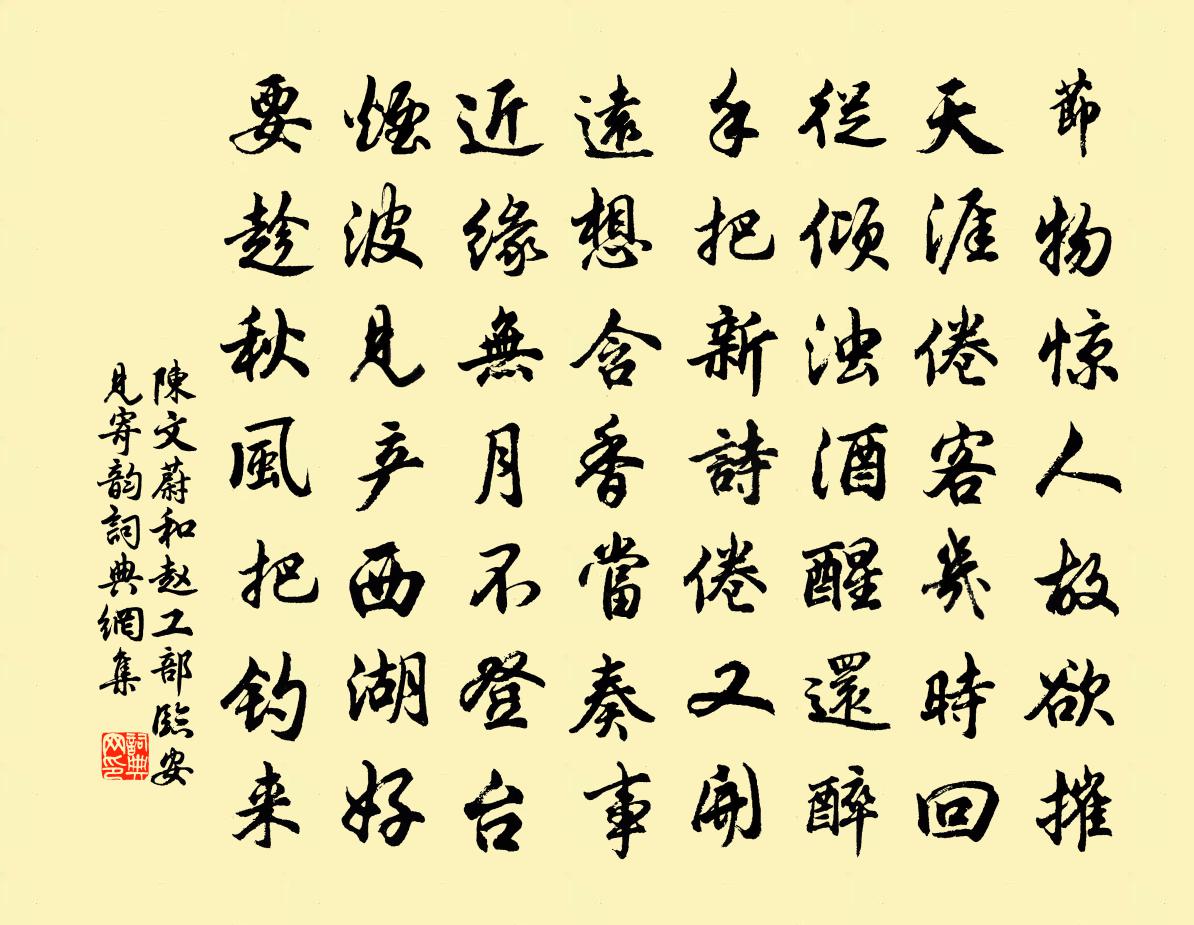 節物惊人故欲摧
天涯倦客幾時回
從傾浊酒醒還醉
手把新詩倦又開
遠想含香當奏事
近緣無月不登台
煙波見产西湖好
要趁秋風把钓来
陳文蔚和赵工部臨安
見寄韵詞典網集
詞典
网印